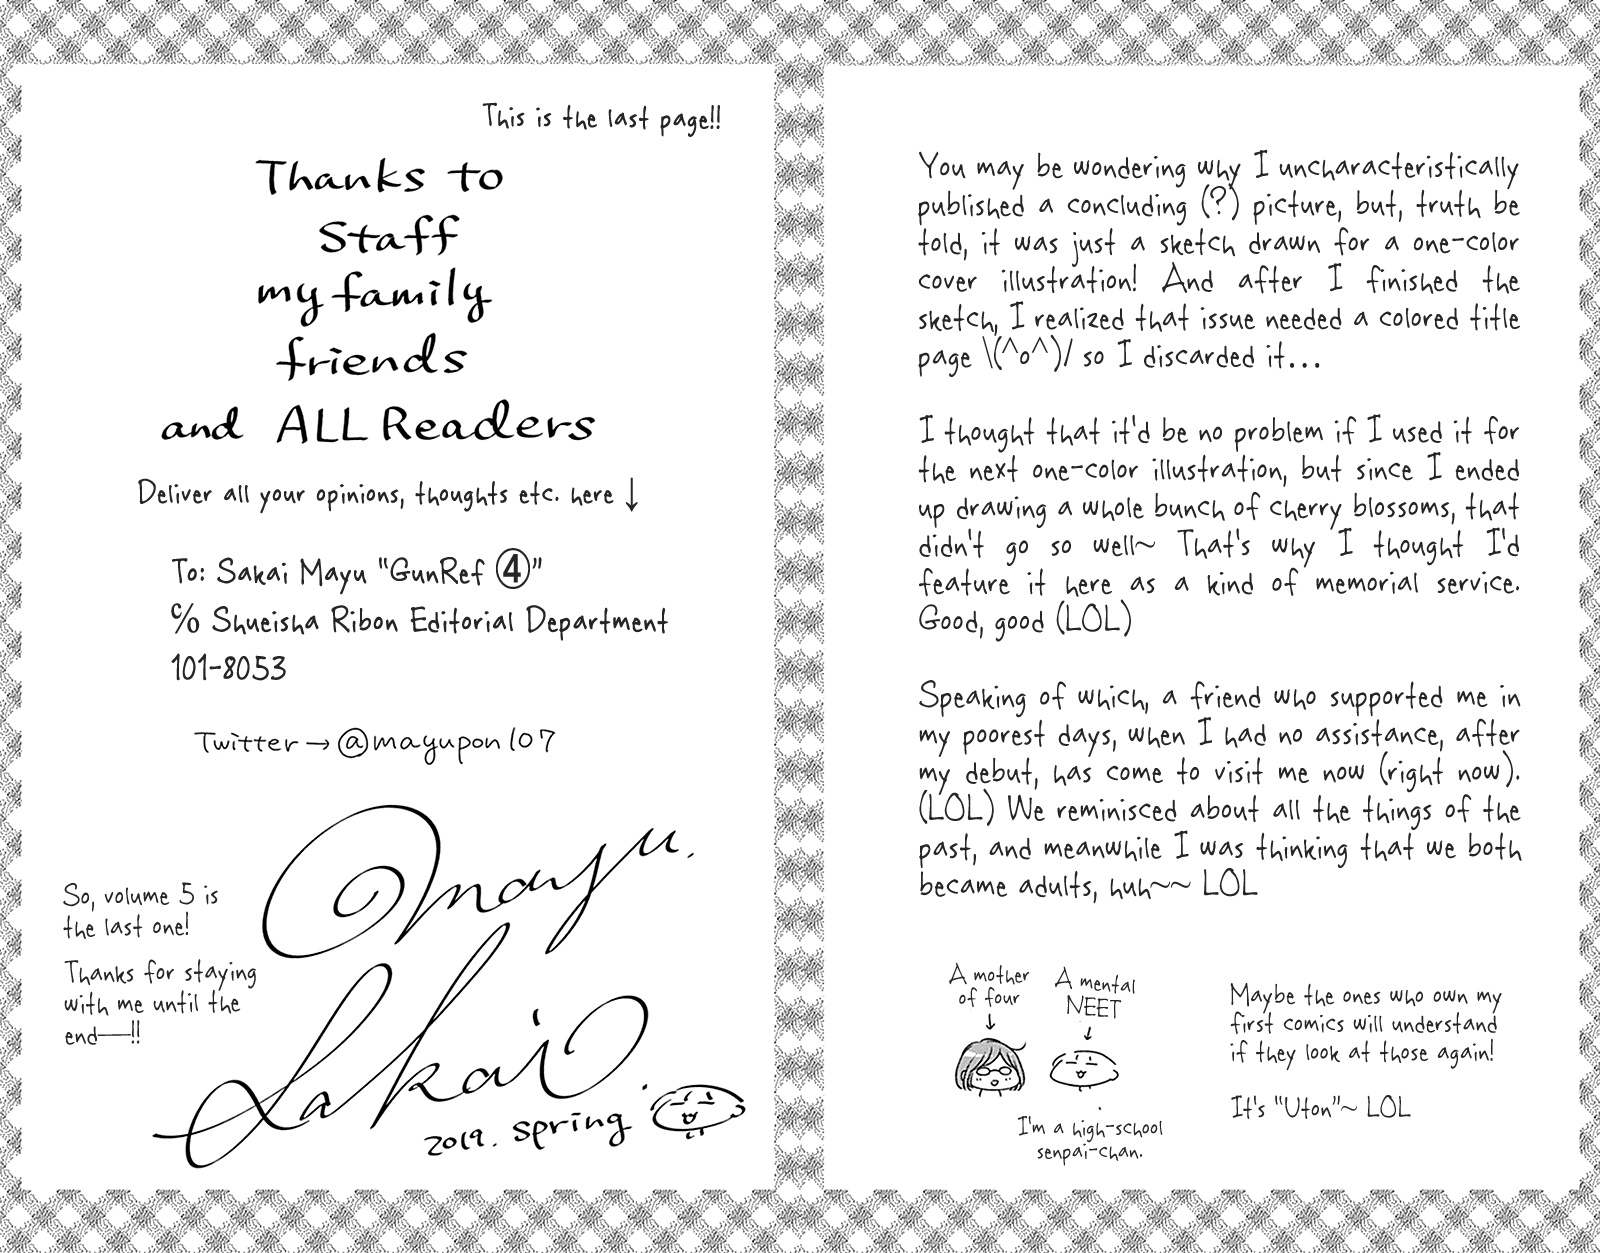 You may be wondering why I uncharacteristically
published a concluding (?) picture, but, truth be
told, it was just a sketch drawn for a one-color
cover illustration! And after I finished the
sketch, I realized that issue needed a colored title
page \(^o^)/ so I discarded it...
I thought that it'd be no problem if I used it for
the next one-color illustration, but since I ended
up drawing a whole bunch of cherry blossoms, that
didn't go so well~ That's why I thought I'd
feature it here as a kind of memorial service.
Good, good (LOL)
Speaking of which, a friend who supported me in
my poorest days, when I had no assistance, after
my debut, has come to visit me now (right now).
(LOL) We reminisced about all the things of the
past, and meanwhile I was thinking that we both
became adults, huh~~ LOL
A mother
of four
↓
A mental
NEET
↓
I'm a high-school
senpai-chan.
Maybe the ones who own my
first comics will understand
if they look at those again!
It's "Uton"~ LOL
This is the last page!!
Thanks to
Staff
my family
friends
and ALL Readers
Deliver all your opinions, thoughts etc. here ↓
To: Sakai Mayu "GunRef ④"
℅ Shueisha Ribon Editorial Department
101-8053
Twitter → @mayupon107
So, volume 5 is
the last one!
Thanks for staying
with me until the
end—!!
Mayu.
Sakai.
2019. spring